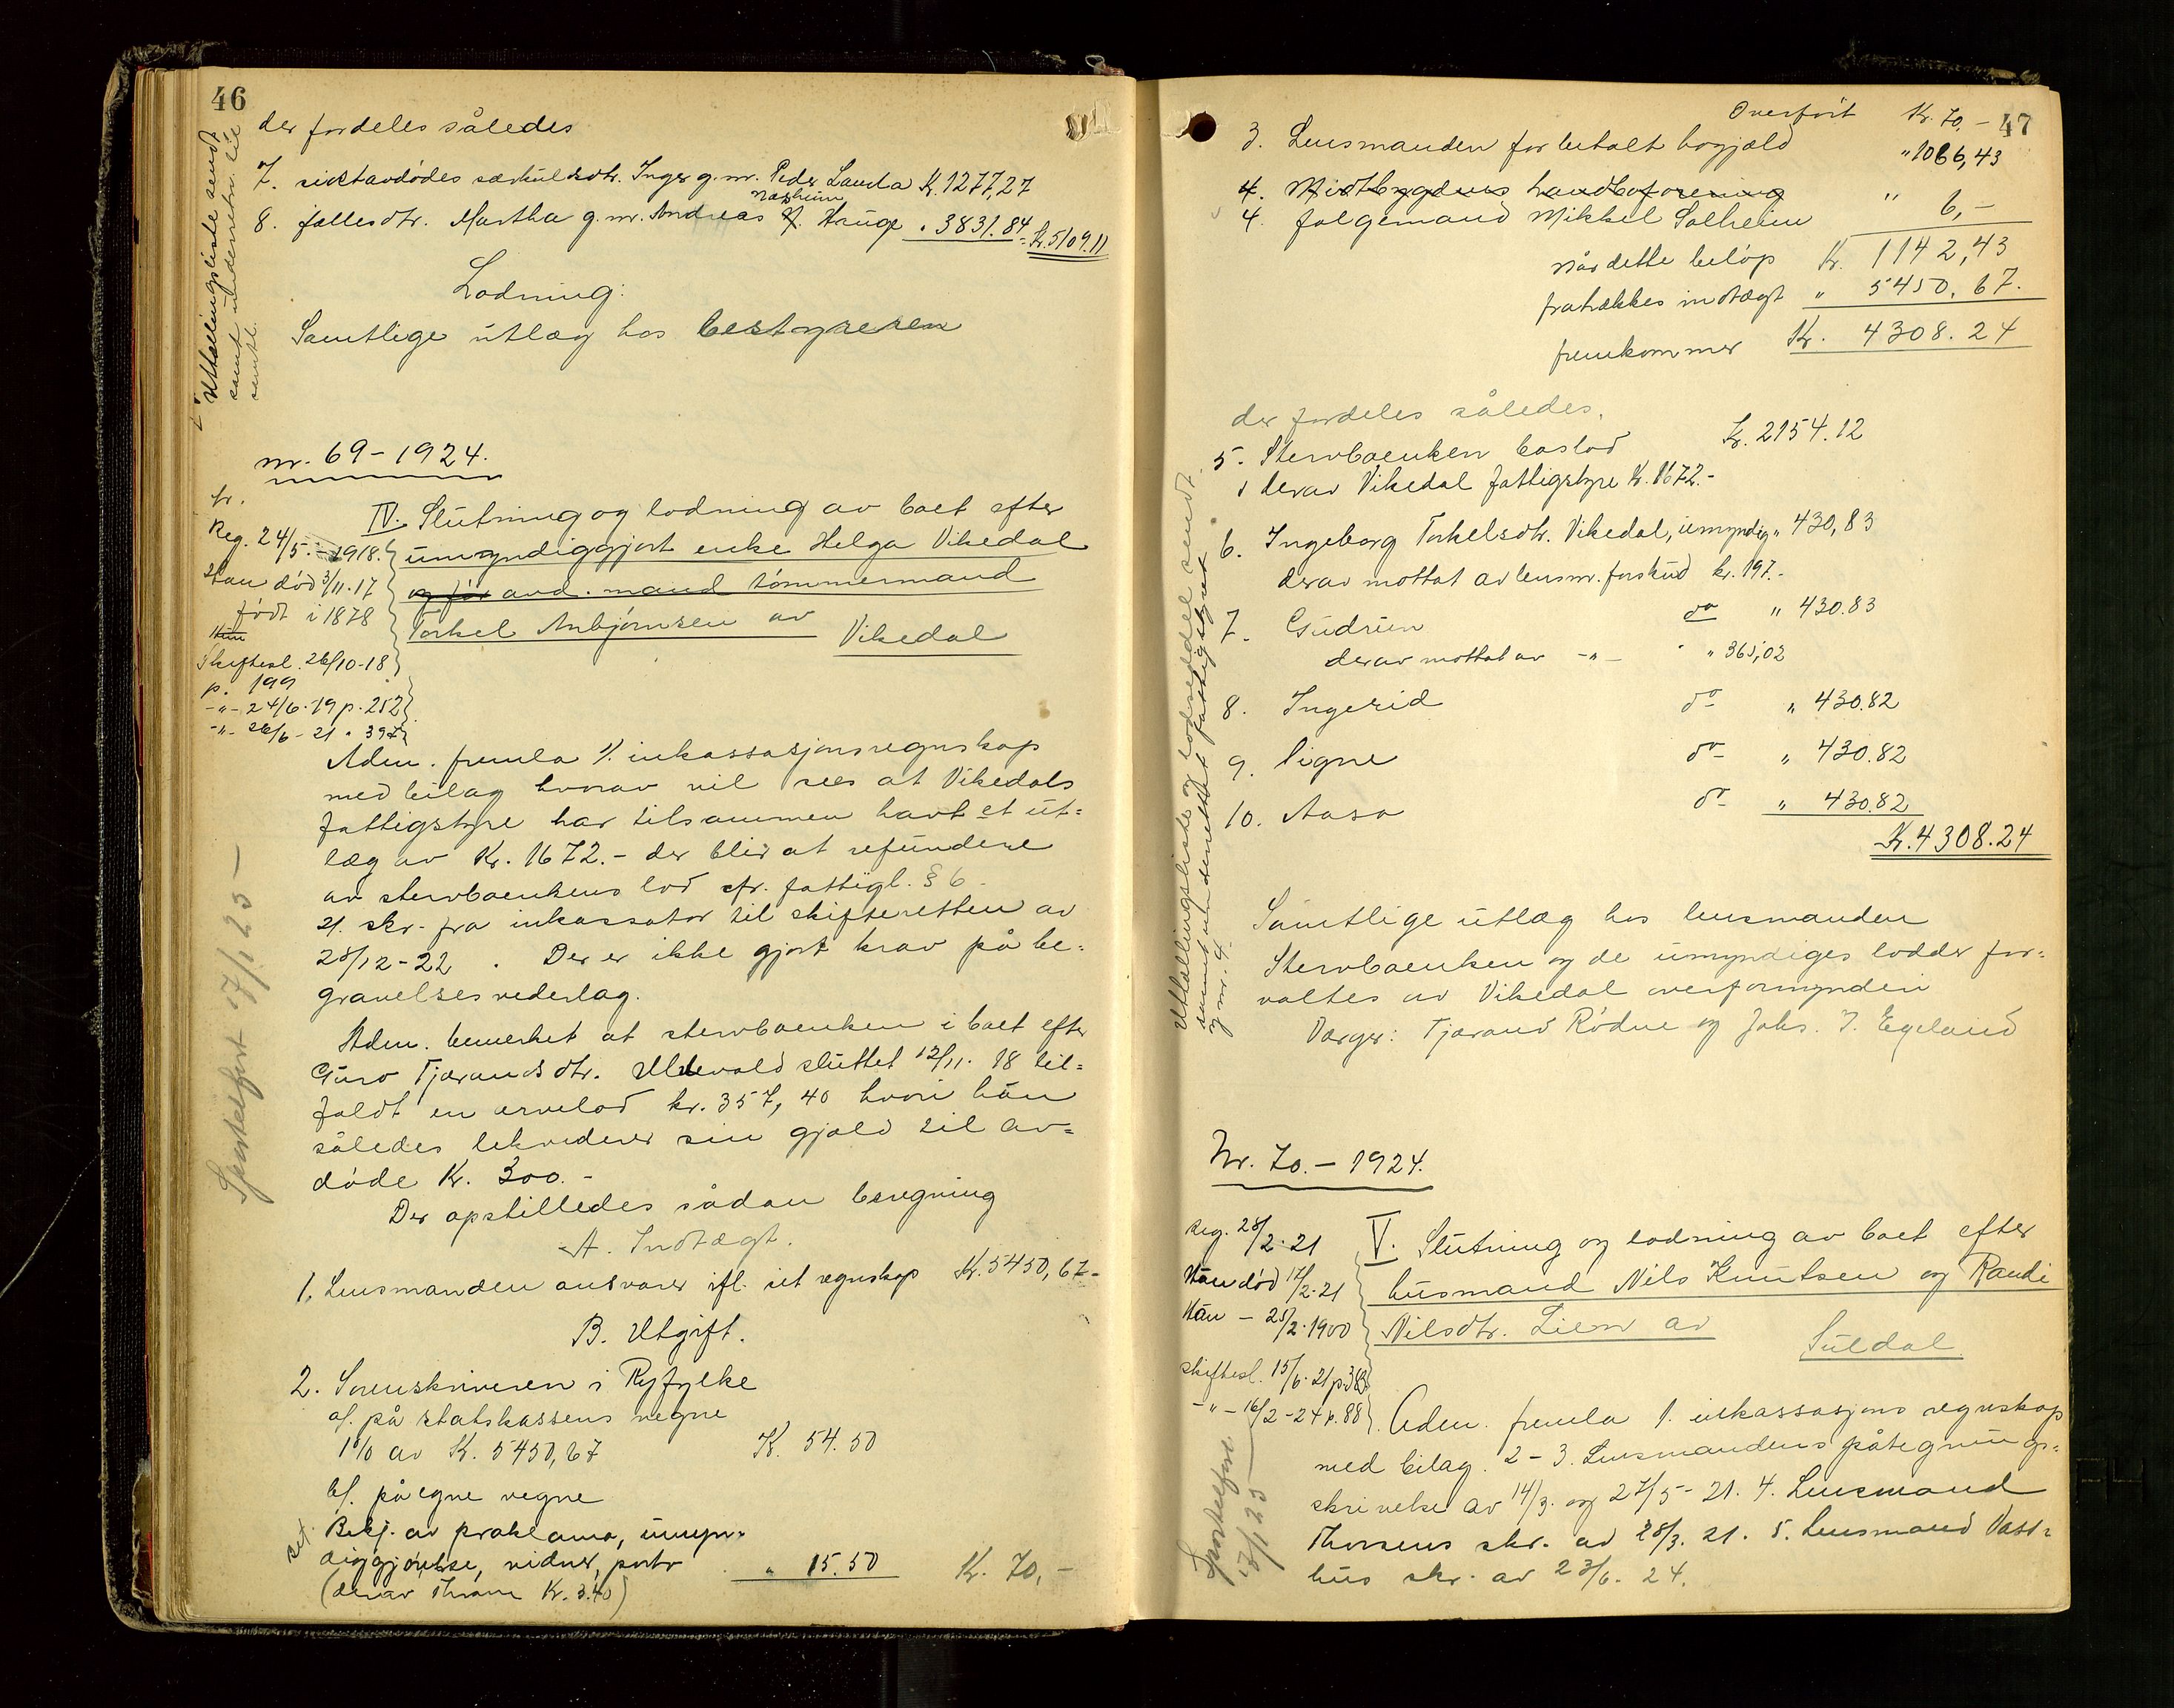 46
der fordeles således
7. sidstavdødes særkulsdtr. Inger g. m. Peder Landa K. 1277,27
Næsheim
8. fællesdtr. Martha g. m. Andreas Hauge " 3831.84 = K. 5109.11
Utbetalingsliste sendt
samt underretn. til
samtl.
Lodning:
Samtlige utlæg hos bestyreren
nr. 69 - 1924.
Reg. 24/5 - 1918.
Han død 3/11.17
født i 1878
Hun
Skiftesl. 26/10-18
p. 199
-"- 24/6.19 p. 252
-"- 26/6 - 21 " 397
IV. Slutning og lodning av boet efter
umyndiggjort enke Helga Vikedal
og før avd. mand tømmermand
Torkel Anbjørnsen av
Vikedal
Adm. fremla 1/. inkassasjonsregnskap
med bilag hvorav vil sees at Vikedals
fattigstyre har tilsammen havt et ut=
læg av Kr. 1672.- der blir at refundere
av stervboenkens lod cfr. fattigl. § 6.
2/. skr. fra inkassator til skifteretten av
28/12-22 . Der er ikke gjort krav på be=
gravelsesvederlag.
Adm. bemerket at stervboenken i boet efter
Guro Tjærandsdtr. Ullevold sluttet 12/11. 18 til=
faldt en arvelod kr. 357,40 hvori hun
således lekviderer sin gjæld til av=
døde K. 300.-
Der opstilledes sådan beregning
A. Indtægt.
1. Lensmanden ansvarer ifl. sit regnskap K. 5450,67-
B. Utgift.
2. Sorenskriveren i Ryfylke
a/. på statskassens vegne
1% av K. 5450,67 K. 54.50
b/. på egne vegne
Bekj. av proklama, umyn=
diggjørelse, vidner, porto " 15.50 K. 70,-
(derav Thrane K. 3.40)
Sportelført 17/1 25 -
47
Overført K. 70,-
3. Lensmanden for betalt bogjæld " 1066,43
4. Midtbygdens handelsforening
4. følgemand Mikkel Solheim " 6,-
Når dette beløp K. 1142,43
fratrækkes indtægt " 5450,67.
fremkommer K. 4308.24
der fordeles således.
5. Stervboenken boslod K. 2154.12
derav Vikedal fattigstyre K. 1672.-
6. Ingeborg Torkelsdtr. Vikedal, umyndig " 430,83
derav mottat av lensm. forskud kr. 197.-
7. Gudrun do " 430.83
derav mottat av -"- " 365,02
8. Ingerid do " 430.82
9. Signe do " 430.82
10. Aasa do " 430.82
K. 4308.24
Utbetalingsliste og lodseddel sendt
samt underrettet fattigstyret
og nr. 4.
Samtlige utlæg hos lensmanden
Stervboenken og de umyndiges lodder for=
valtes av Vikedal overformynderi
Værger: Tjærand Rødne og Johs. J. Egeland
Nr. 70. - 1924.
Reg. 28/2.21
Han død 12/2.21
Hun - 25/2.1900
Skiftesl. 15/6.21 p. 383
-"- 16/2-24 p. 88
V. Slutning og lodning av boet efter
husmand Nils Knutsen og Randi
Nilsdtr. Lien av
Suldal
Adm. fremla 1. inkassasjons regnskap
med bilag. 2-3. Lensmandens påtegnings=
skrivelse av 14/3. og 27/5 - 21. 4. Lensmand
Thorsens skr. av 28/3. 21. 5. Lensmand Vast=
hus skr. av 23/6. 24.
Sportelført
17/1 25